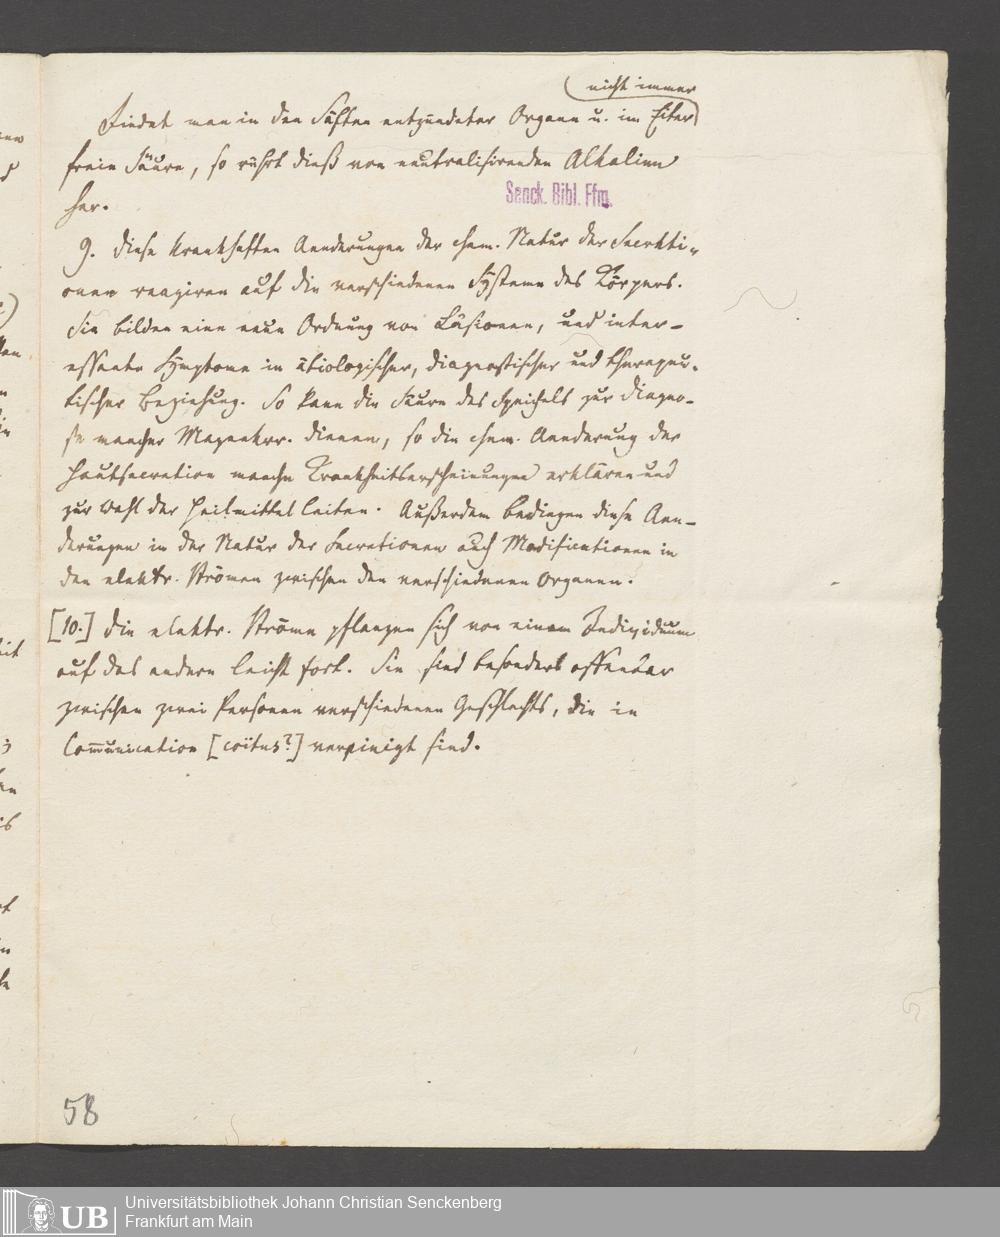 nicht immer
Findet man in den Säften entzündeter Organe u. im Eiter
freie Säure, so rührt dieß von neutralisirenden Alkalien
her.
Senck. Bibl. Ffm.
9. Diese krankhaften Aenderungen der chem. Natur der Secreti-
onen reagiren auf die verschiedenen Systeme des Körpers.
Sie bilden eine neue Ordnung von Läsionen, und inter-
essante Symptome in ätiologischer, diagnostischer und therapeu-
tischer Beziehung. So kann die Säure des Speichels zur Diagno-
se mancher Magenkrr. dienen, so die chem. Aenderung der
Hautsecretion manche Krankheitserscheinungen erklären und
zur Wahl der Heilmittel leiten. Außerdem bedingen diese Aen-
derungen in der Natur der Secretionen auch Modificationen in
den elektr. Strömen zwischen den verschiedenen Organen.
[10.] Die elektr. Ströme pflanzen sich von einem Individuum
auf das andere leicht fort. Sie sind besonders offenbar
zwischen zwei Personen verschiedenen Geschlechts, die in
Communication [coitus?] vereinigt sind.
58
UB
Universitätsbibliothek Johann Christian Senckenberg
Frankfurt am Main